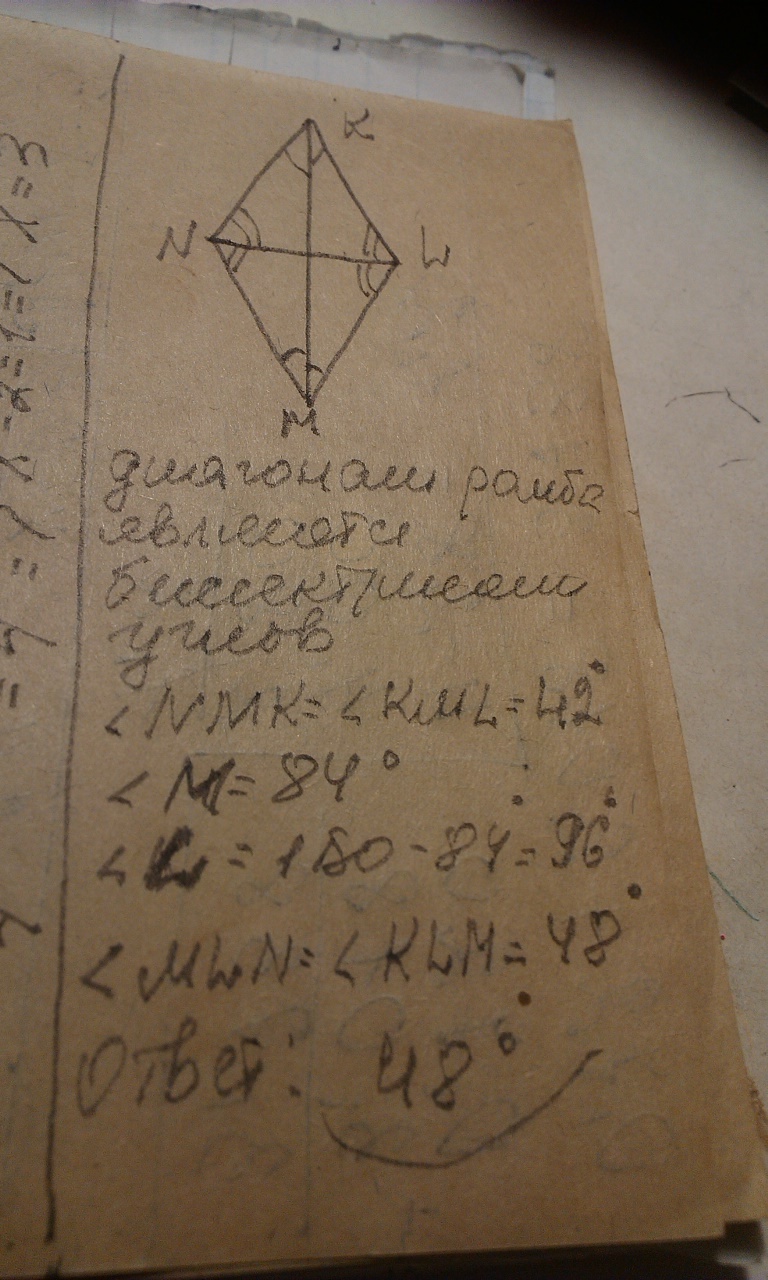 K
N
L
M
диагонали ромба
являются
биссектрисами
углов
∠NMK=∠KML=42°
∠M=84°
∠L=180°-84°=96°
∠MLN=∠KLM=48°
Ответ: 48°
x=3